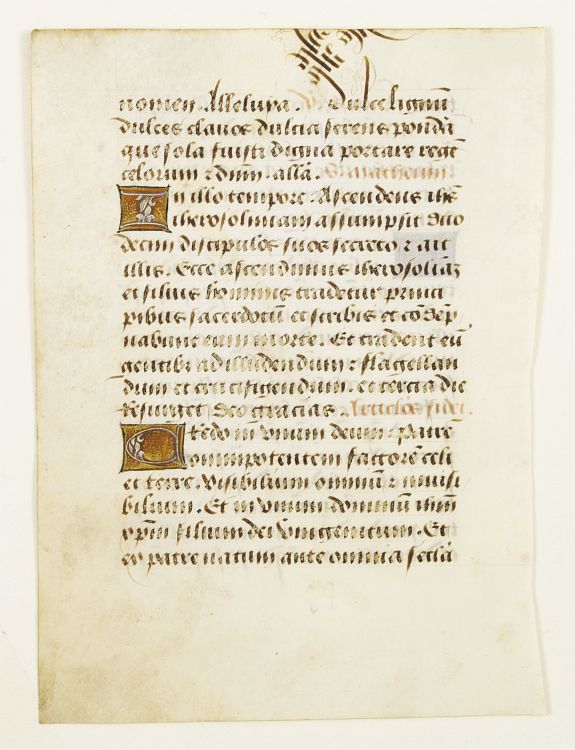 nomen. Alleluya. Dulce lignū
dulces clavos dulcia ferens pondā
que sola fuisti digna portare regē
celorum ⁊ dnm̄. allā. S. matheum
In illo tempore. Ascendens ihs̄
iherosolimam assumpsit duo
decim discipulos suos secreto ⁊ ait
illis. Ecce ascendimus iherosolimā
et filius hominis tradetur princi
pibus sacerdotū et scribis et cōdep
nabunt eum morte. Et tradent eū
gentib; ad illudendum ⁊ flagellan
dum et crucifigendum. et tercia die
resurget Deo gracias. Articlos fidei.
Credo in vnum deum. patrē
omnipotentem factorē celi
et terre. visibilium omniū ⁊ inuisi
bilium. Et in vnum dominū ihm̄
xpm̄ filium dei vnigenitum. Et
ex patre natum ante omnia seclā